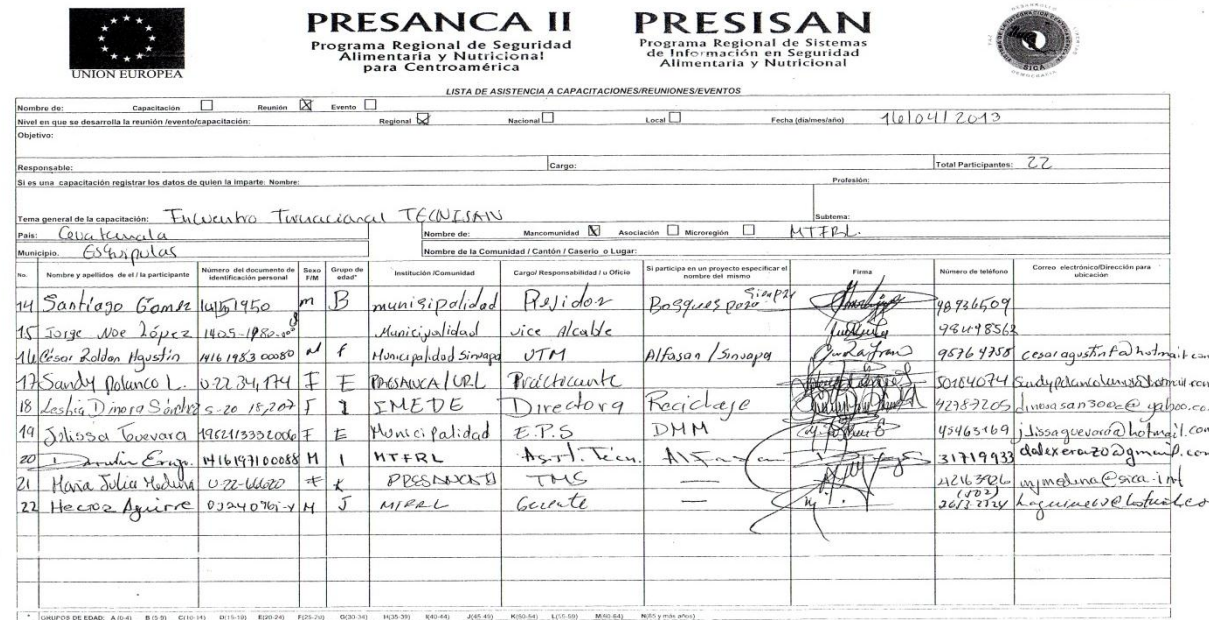 UNION EUROPEA
PRESANCA II
Programa Regional de Seguridad
Alimentaria y Nutricional
para Centroamérica
PRESISAN
Programa Regional de Sistemas
de Información en Seguridad
Alimentaria y Nutricional
SICA
LISTA DE ASISTENCIA A CAPACITACIONES/REUNIONES/EVENTOS
Nombre de: Capacitación Reunión X Evento
Nivel en que se desarrolla la reunión /evento/capacitación: Regional Nacional Local Fecha (día/mes/año) 16/04/2013
Objetivo:
Responsable: Cargo: Total Participantes: 22
Si es una capacitación registrar los datos de quien la imparte: Nombre: Profesión:
Tema general de la capacitación: TECNISAN Subtema:
País: Nombre de: Mancomunidad X Asociación Microregión MTFRL.
Municipio. Esquipulas Nombre de la Comunidad / Cantón / Caserio o Lugar:
No. Nombre y apellidos de el / la participante Número del documento de identificación personal Sexo F/M Grupo de edad* Institución /Comunidad Cargo/ Responsabilidad / u Oficio Si participa en un proyecto especificar el nombre del mismo Firma Número de teléfono Correo electrónico/Dirección para ubicación
14 Santiago Gomez m B municipalidad Rejidor Bosques para siempre 98936509
15 Jorge Noe López Municipalidad vice Alcalde 98498562
16 César Roldan Agustín 1416198300080 M f Municipalidad Sinuapa UTM Alfasan / Sinuapa 95764758
17 Sandy Polanco L. F E PRESANCA / URL Practicante 50184074
18 Lesbia Dinora Sánchez F I IMEDE Directora Reciclaje 42787205
19 Jilissa Guevara F E Municipalidad E.P.S DMM 45463169
20 M I MTFRL Asist. Técn. Alfasan 31719933 dalexerazo@gmail.com
21 Maria Julia Medina F K PRESANCA II TMS —
22 Hector Aguirre M J MTFRL Gerente —
* GRUPOS DE EDAD: A (0-4) B (5-9) C(10-14) D(15-19) E(20-24) F(25-29) G(30-34) H(35-39) I(40-44) J(45-49) K(50-54) L(55-59) M(60-64) N(65 y más años)